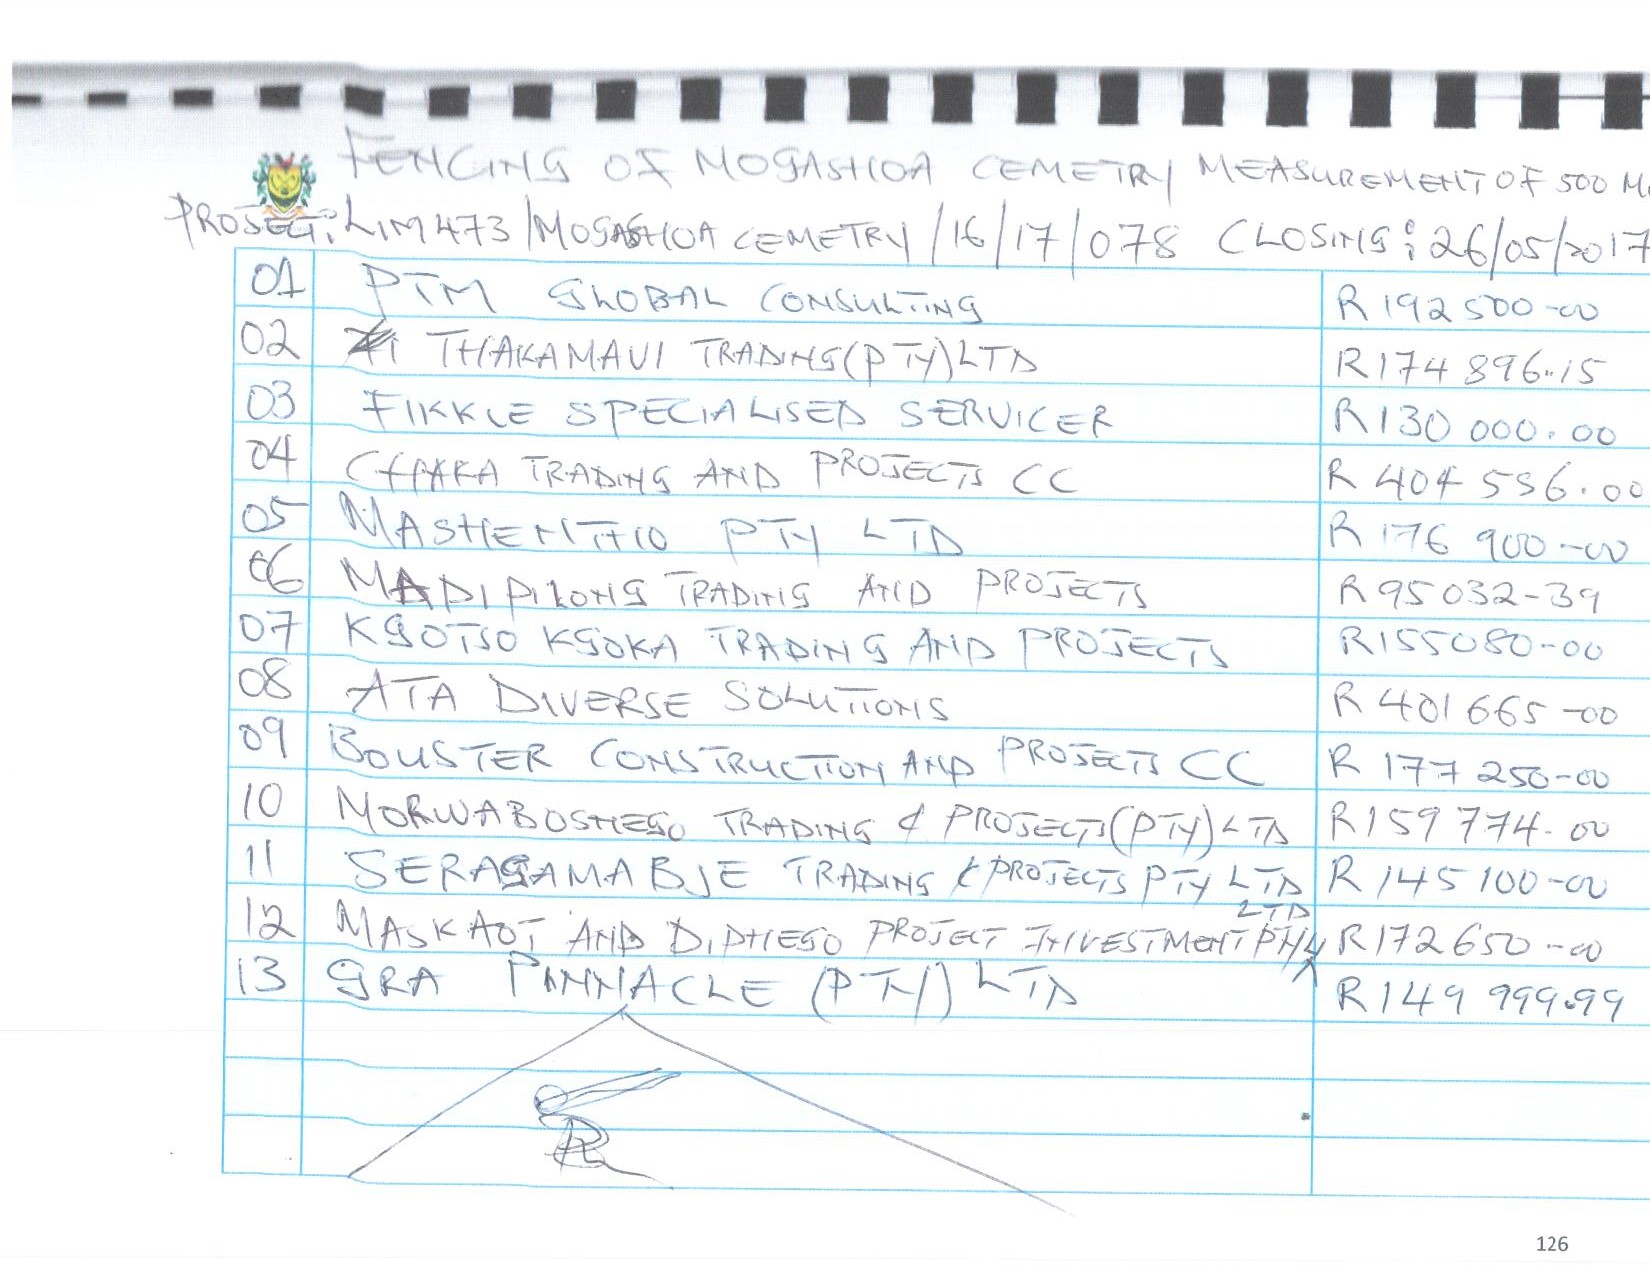 FENCING OF MOGASHOA CEMETRY MEASUREMENT OF 500 M
PROJECT: LIM473/MOGASHOA CEMETRY/16/17/078 CLOSING: 26/05/2017
01 PTM GLOBAL CONSULTING R 192 500-00
02 THAKAMAVI TRADING (PTY) LTD R174 896.15
03 FIKKLE SPECIALISED SERVICER R130 000.00
04 CHAKA TRADING AND PROJECTS CC R 404 556.00
05 MASHENTHO PTY LTD R 176 900-00
06 MADIPILONG TRADING AND PROJECTS R 95 032-39
07 KGOTSO KGOKA TRADING AND PROJECTS R155 080-00
08 ATA DIVERSE SOLUTIONS R 401 665-00
09 BOUSTER CONSTRUCTION AND PROJECTS CC R 177 250-00
10 MORWABOSHEGO TRADING & PROJECTS (PTY) LTD R159 774.00
11 SERAGAMABJE TRADING & PROJECTS PTY LTD R 145 100-00
12 MASKAOT AND DIPHEGO PROJECT INVESTMENT PTY LTD R172 650-00
13 GRA PINNACLE (PTY) LTD R149 999.99
126